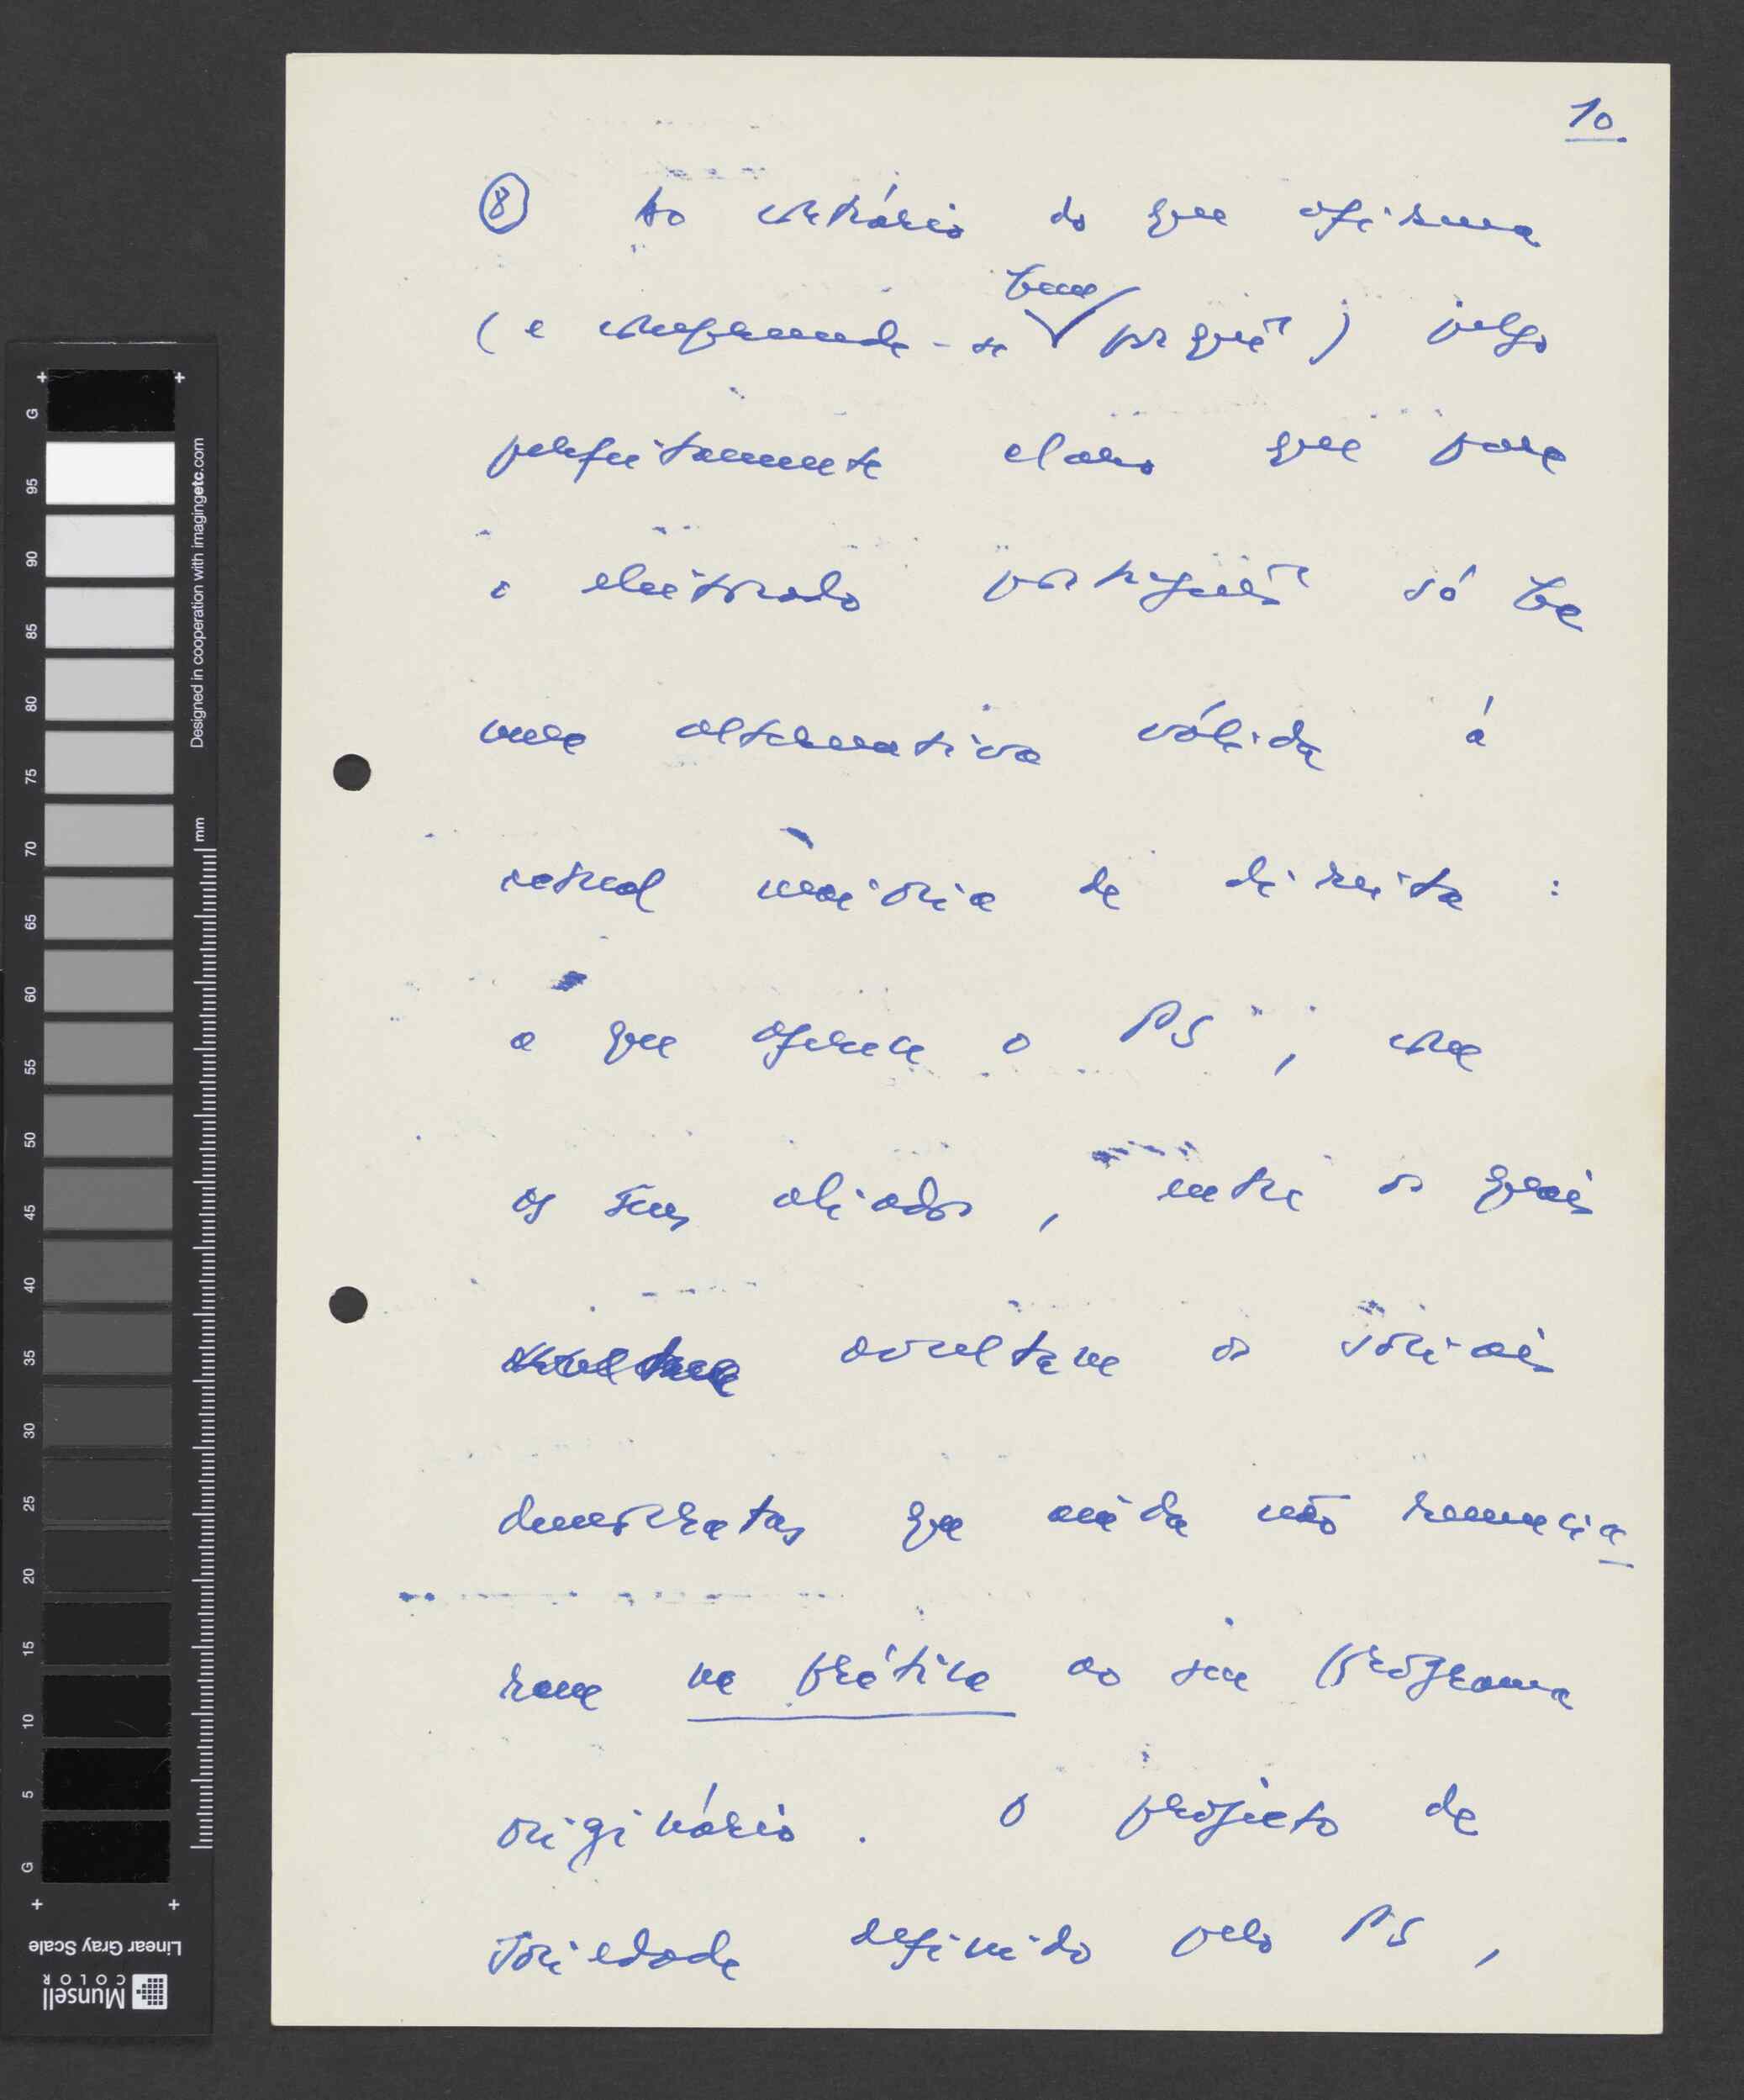 10.
⑧ Ao contrário do que afirma
bem
(e compreende-se porquê) julgo
perfeitamente claro que para
o eleitorado português só há
uma alternativa válida à
actual maioria de direita :
a que oferece o PS, com
os seus aliados, entre os quais
avultam os sociais
democratas que ainda não renuncia
ram na prática ao seu programa
originário. O projecto de
sociedade definido pelo PS,
G
95
90
85
80
75
70
65
60
55
50
45
40
35
30
25
20
15
10
5
G
Designed in cooperation with imagingetc.com
mm
Linear Gray Scale
Munsell
COLOR